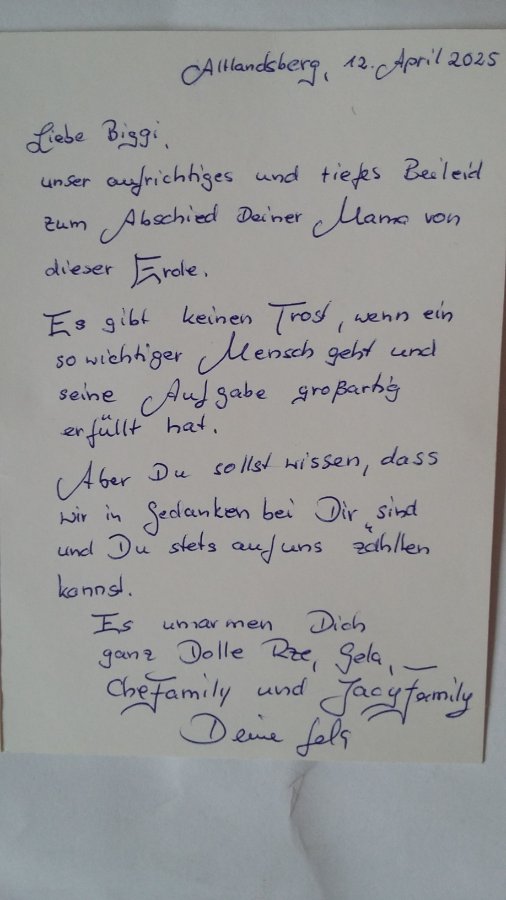 Altlandsberg, 12. April 2025
Liebe Biggi,
unser aufrichtiges und tiefes Beileid
zum Abschied Deiner Mama von
dieser Erde.
Es gibt keinen Trost, wenn ein
so wichtiger Mensch geht und
seine Aufgabe großartig
erfüllt hat.
Aber Du sollst wissen, dass
wir in Gedanken bei Dir sind
und Du stets auf uns zählen
kannst.
Es umarmen Dich
ganz Dolle Gela,
CheFamily und Jacyfamily
Deine Gela